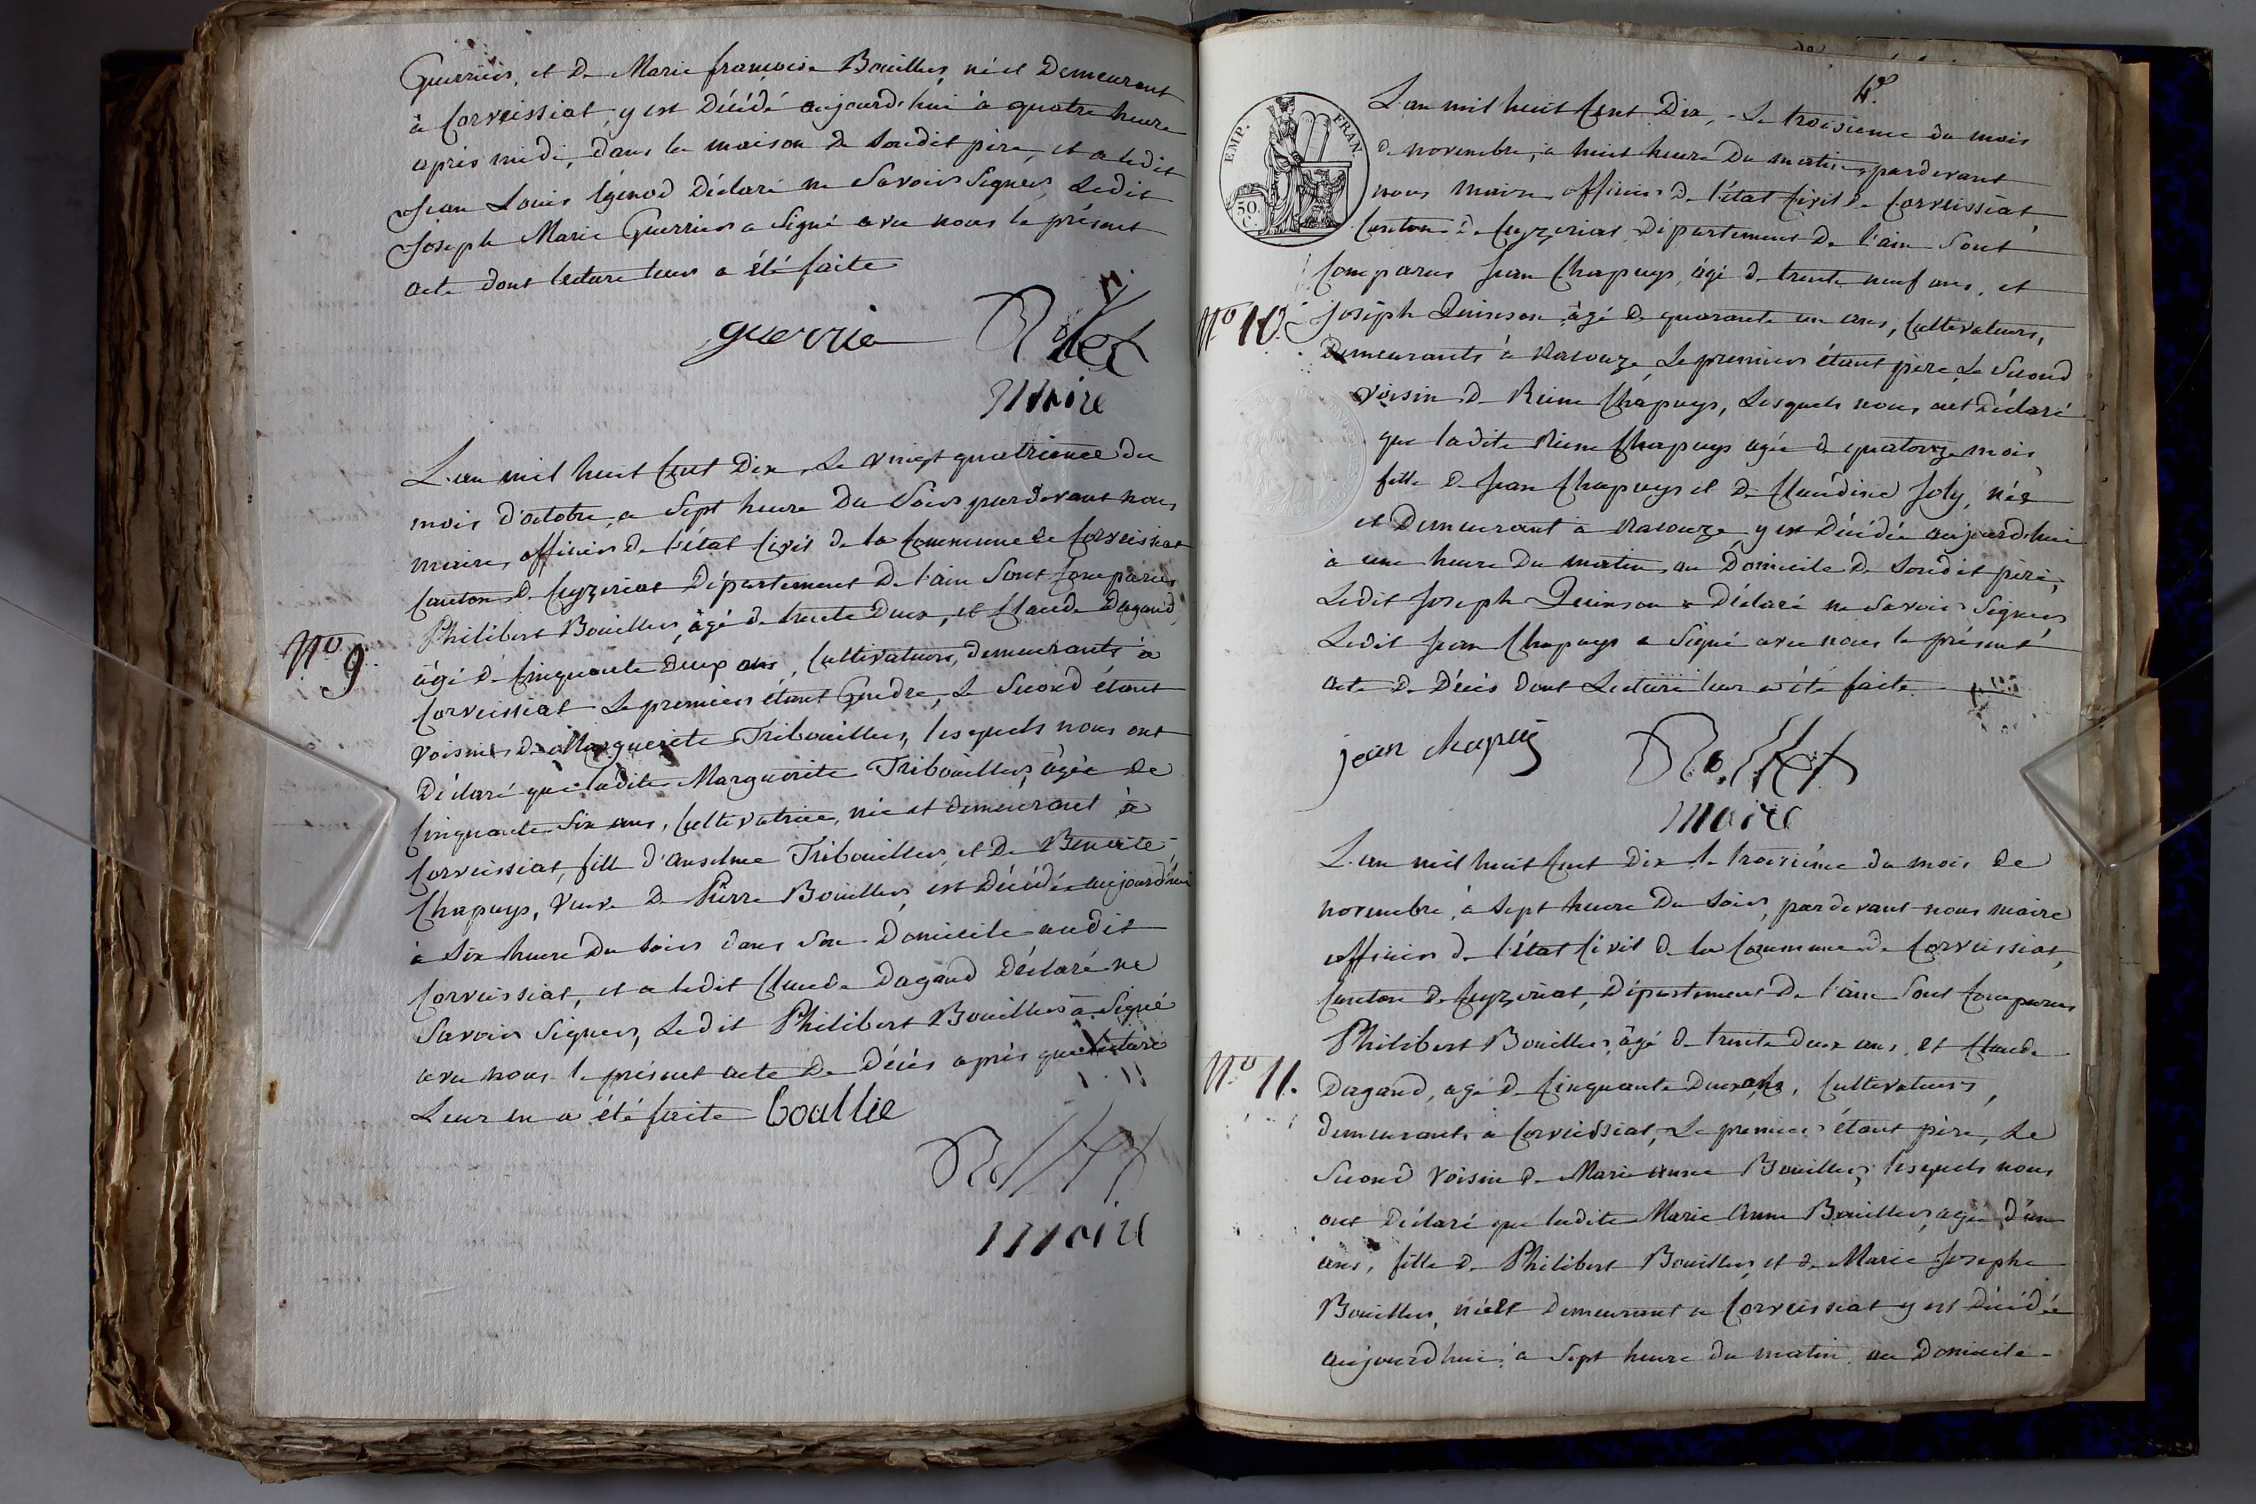 Guerrier, et De Marie françoise Bouiller, né et Demeurant
à Corveissiat, y est Décédé aujourd'hui à quatre heure
après midi, dans la maison De Soudit père, et a ledit
Jean Louis Génod Déclaré ne Savoir Signer, Ledit
Joseph Marie Guerrier a Signé avec nous le présent
acte dont lecture leur a été faite
guerrie Rollet
maire
L'an mil huit Cent Dix, Le vingt quatrieme du
mois d'octobre, a Sept heure Du Soir pardevant nous
maire, officier de l'état Civil de la Commune de Corveissiat
Canton De Ceyzeriat Département De l'ain Sont Comparus
Philibert Bouiller, âgé de trente Deux, et Claude Dagand,
No 9.
âgé de Cinquante Deux ans, Cultivateurs, demeurants à
Corveissiat Le premier étant Gendre, Le Second étant
voisin De Marguerite Tribouiller, lesquels nous ont
Déclaré que ladite Marguerite Tribouiller, âgée de
Cinquante Six ans, Cultivatrice, née et demeurant à
Corveissiat, fille d'Anselme Tribouiller et De Benoite
Chapuys, Veuve De Pierre Bouiller, est Décédée aujourd'hui
à Six heure Du Soir dans Son Domicile audit
Corveissiat, et a ledit Claude Dagand Déclaré ne
Savoir Signer, Ledit Philibert Bouiller a Signé
avec nous le présent acte De Décès après que lecture
Leur en a été faite boullie
Rollet
maire
4e
EMP. FRAN.
50.
C.
L'an mil huit Cent Dix, Le troisieme du mois
de novembre, à huit heure Du matin, pardevant
nous maire officier De l'état Civil de Corveissiat,
Canton De Ceyzeriat Département De l'ain Sont
Comparus Jean Chapuys, âgé de trente neuf ans, et
No 10.
Joseph Quinson âgé De quarante un ans, Cultivateurs,
Demeurants à Racouze, Le premier étant père, Le Second
voisin De Reine Chapuys, Lesquels nous ont Déclaré
que ladite Reine Chapuys agée de quatorze mois,
fille De Jean Chapuys et De Claudine Joly, née
et Demeurant à Racouze y est Décédée aujourd'hui
à une heure Du matin, au Domicile De Soudit père,
Ledit Joseph Quinson a Déclaré ne Savoir Signer
Ledit Jean Chapuys a Signé avec nous le présent
acte De Décès Dont Lecture leur a été faite.
jean chapuis Rollet
maire
L'an mil huit Cent Dix le troisiéme du mois de
novembre, à Sept heure Du Soir, pardevant nous maire
officier de l'état Civil de la Commune de Corveissiat,
Canton De Ceyzeriat, Département De l'ain Sont Comparus
Philibert Bouiller, âgé De trente Deux ans, et Claude
No 11.
Dagand, agé De Cinquante Deux ans, Cultivateurs,
demeurants à Corveissiat, Le premier étant père, Le
Second Voisin De Marie anne Bouiller, lesquels nous
ont Déclaré que ladite Marie Anne Bouiller, agée d'un
ans, fille De Philibert Bouiller et de Marie Josephe
Bouiller, née et demeurant a Corveissiat y est décédée
aujourd'hui, à Sept heure du matin, au Domicile